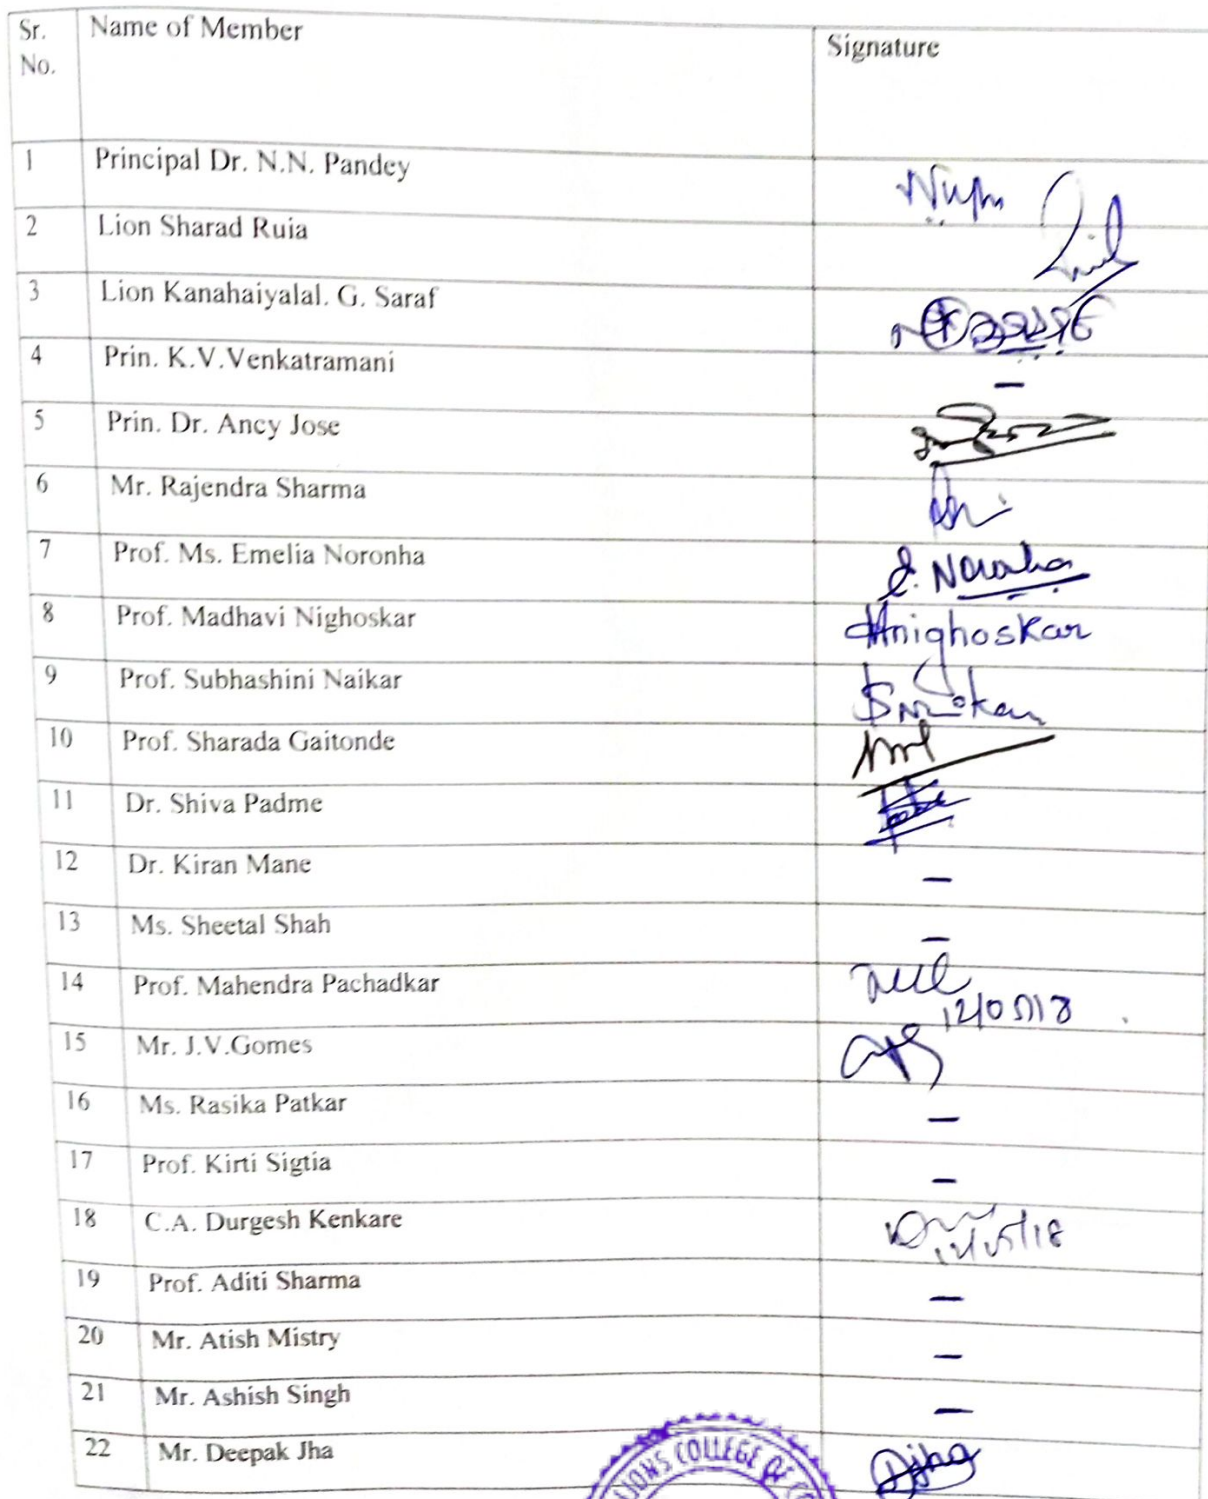 Sr. No. Name of Member Signature
1 Principal Dr. N.N. Pandey
2 Lion Sharad Ruia
3 Lion Kanahaiyalal. G. Saraf
4 Prin. K.V.Venkatramani –
5 Prin. Dr. Ancy Jose
6 Mr. Rajendra Sharma
7 Prof. Ms. Emelia Noronha E. Noronha
8 Prof. Madhavi Nighoskar Mnighoskar
9 Prof. Subhashini Naikar
10 Prof. Sharada Gaitonde
11 Dr. Shiva Padme
12 Dr. Kiran Mane –
13 Ms. Sheetal Shah –
14 Prof. Mahendra Pachadkar
15 Mr. J.V.Gomes
16 Ms. Rasika Patkar –
17 Prof. Kirti Sigtia –
18 C.A. Durgesh Kenkare
19 Prof. Aditi Sharma –
20 Mr. Atish Mistry –
21 Mr. Ashish Singh –
22 Mr. Deepak Jha Djha
LIONS COLLEGE OF